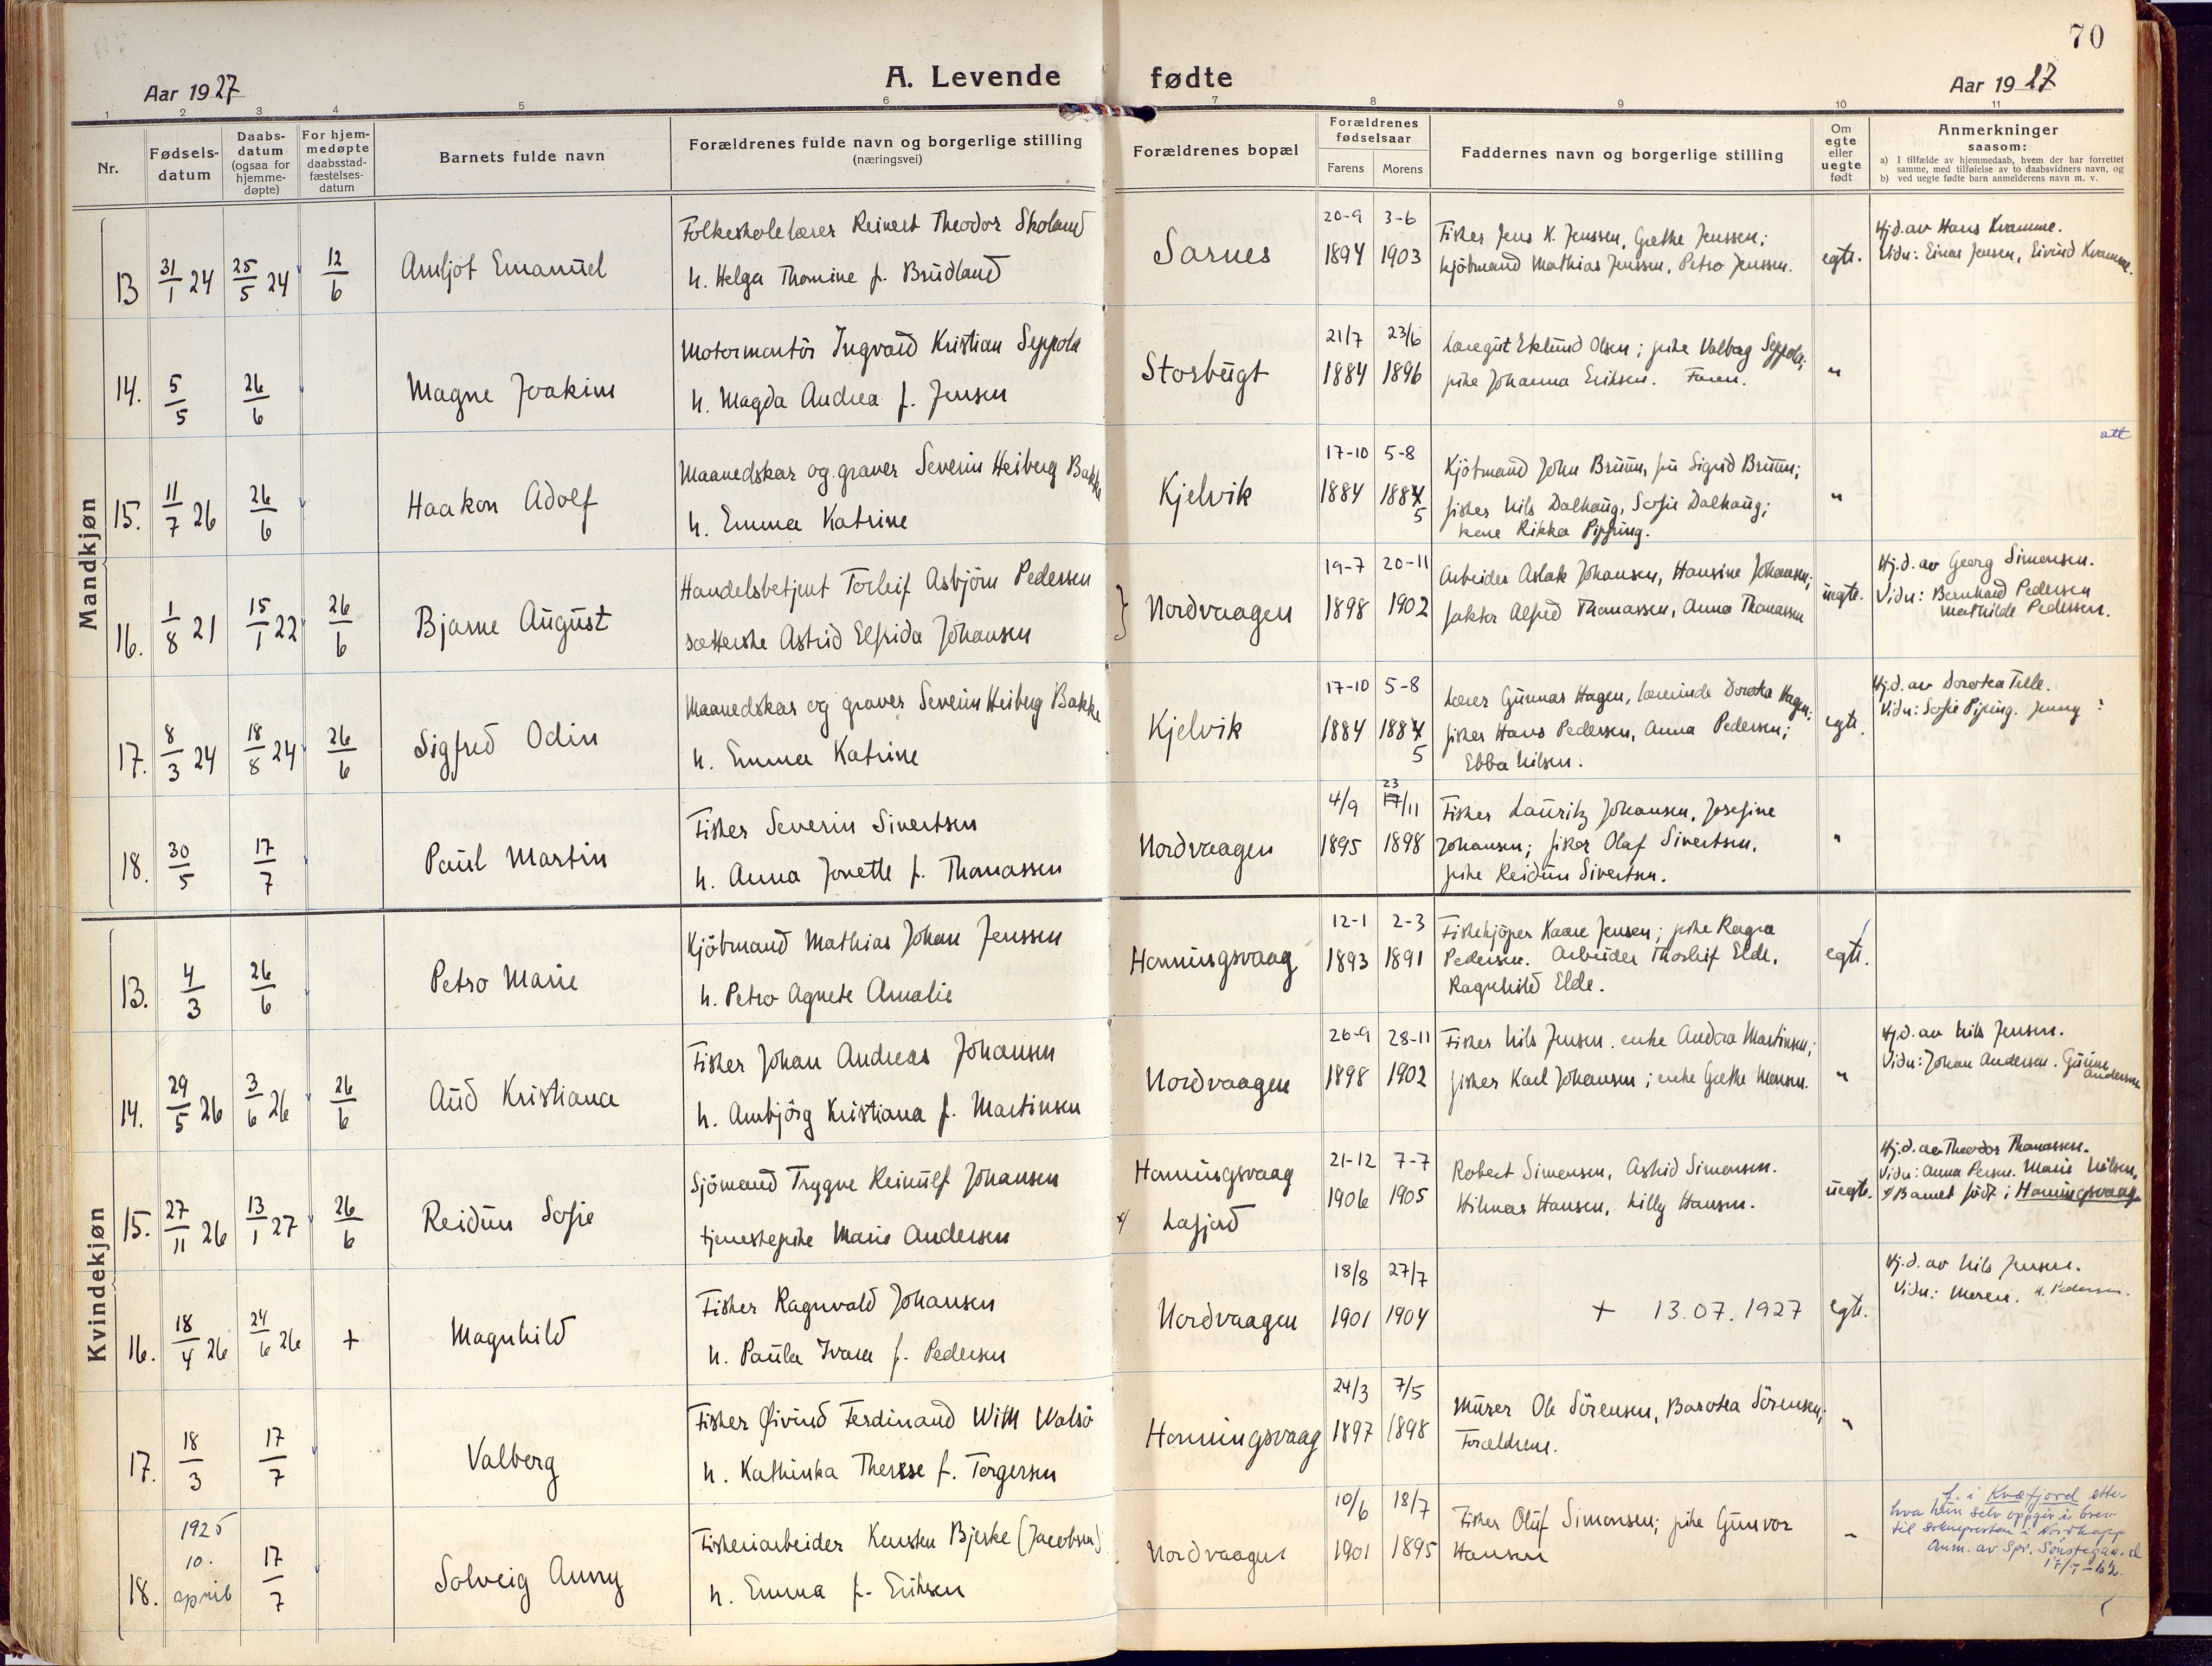 70
A. Levende fødte
Aar 1927
Aar 1927
1 2 3 4 5 6 7 8 9 10 11
Nr.
Fødsels-
datum
Daabs-
datum
(ogsaa for
hjemme-
døpte)
For hjem-
medøpte
daabsstad-
fæstelses-
datum
Barnets fulde navn
Forældrenes fulde navn og borgerlige stilling
(næringsvei)
Forældrenes bopæl
Forældrenes
fødselsaar
Farens Morens
Faddernes navn og borgerlige stilling
Om
egte
eller
uegte
født
Anmerkninger
saasom:
a) I tilfælde av hjemmedaab, hvem der har forrettet
samme, med tilføielse av to daabsvidners navn, og
b) ved uegte fødte barn anmelderens navn m. v.
Mandkjøn
13 31/1 24 25/5 24 12/6 Amljot Emanuel
Folkeskolelærer Reinert Theodor Skoland
h. Helga Thomine f. Brudland
Sarnes
20-9 3-6
1894 1903
Fisker Jens K. Jenssen, Grethe Jenssen;
kjöbmand Mathias Jenssen, Petro Jenssen.
egte.
Hj.d. av Hans Kvamme.
Vidn: Einar Jensen, Eivind Kvamme.
14. 5/5 26/6 Magne Joakim
Motormontör Ingvald Kristian Seppola
h. Magda Andrea f. Jensen
Storbugt
21/7 23/6
1884 1896
Læregut Eklund Olsen; pike Valborg Seppola;
pike Johanna Eriksen. Faren.
"
15. 11/7 26 26/6 Haakon Adolf
Maanedskar og graver Severin Heiberg Bakke
h. Emma Katrine
Kjelvik
17-10 5-8
1884 1884
5
Kjöbmand John Bruun, fru Sigrid Bruun;
fisker Nils Dalhaug, Sofie Dalhaug;
kone Rikka Pipping.
"
att
16. 1/8 21 15/1 22 26/6 Bjarne August
Handelsbetjent Torleif Asbjörn Pedersen
sætterske Astrid Elfrida Johansen
} Nordvaagen
19-7 20-11
1898 1902
Arbeider Aslak Johansen, Hansine Johansen;
faktor Alfred Thomassen, Anna Thomassen
uegte.
Hj.d. av Georg Simonsen.
Vidn: Bernhard Pedersen
Mathilde Pedersen.
17. 8/3 24 18/8 24 26/6 Sigfred Odin
Maanedskar og graver Severin Heiberg Bakke
h. Emma Katrine
Kjelvik
17-10 5-8
1884 1884
5
Lærer Gunnar Hagen, lærerinde Dorotea Hagen;
fisker Hans Pedersen, Anna Pedersen;
Ebba Nilsen.
egte.
Hj.d. av Dorotea Tille.
Vidn: Sofie Piping. Jenny ?
18. 30/5 17/7 Paul Martin
Fisker Severin Sivertsen
h. Anna Jonette f. Thomassen
Nordvaagen
23
4/9 17/11
1895 1898
Fisker Lauritz Johansen, Josefine
Johansen; fisker Olaf Sivertsen,
pike Reidun Sivertsen.
"
Kvindekjøn
13. 4/3 26/6 Petro Marie
Kjöbmand Mathias Johan Jenssen
h. Petro Agnete Amalie
Honningsvaag
12-1 2-3
1893 1891
Fiskekjöper Kaare Jensen; pike Ragna
Pedersen. Arbeider Thorleif Elde,
Ragnhild Elde.
egte.
14. 29/5 26 3/6 26 26/6 Aud Kristiana
Fisker Johan Andreas Johansen
h. Ambjörg Kristiana f. Martinsen
Nordvaagen
26-9 28-11
1898 1902
Fisker Nils Jensen. enke Andrea Martinsen;
fisker Karl Johansen; enke Grethe Monsen.
"
Hj.d. av Nils Jensen.
Vidn: Johan Andersen. Gunn
Andersen
15. 27/11 26 13/1 27 26/6 Reidun Sofie
Sjömand Trygve Reinulf Johansen
tjenestepike Marie Andersen
Honningsvaag
x/ Lafjord
21-12 7-7
1906 1905
Robert Simonsen, Astrid Simonsen.
Hilmar Hansen, Lilly Hansen.
uegte.
Hj.d. av Theodor Thomassen.
Vidn: Anna Persen. Marie Nilsen.
x/ Barnet födt i Honningsvaag
16. 18/4 26 24/6 26 + Magnhild
Fisker Ragnvald Johansen
h. Paula Ivara f. Pedersen
Nordvaagen
18/8 27/7
1901 1904
+ 13.07.1927
egte.
Hj.d. av Nils Jensen.
Vidn: Moren. H. Pedersen.
17. 18/3 17/7 Valberg
Fisker Øivind Ferdinand With Walsö
h. Kathinka Therese f. Torgersen
Honningsvaag
24/3 7/5
1897 1898
Murer Ole Sörensen, Barotea Sörensen;
Forældrene.
"
18. 1925
10.
april 17/7 Solveig Anny
Fiskeriarbeider Karsten Bjerke (Jacobsen)
h. Emma f. Eriksen
Nordvaagen
10/6 18/7
1901 1895
Fisker Oluf Simonsen; pike Gunvor
Hansen
"
f. i Kvæfjord etter
hva hun selv oppgir i brev
til soknepresten i Nordkapp
Anm. av Spr. Sönstegaard
17/7-62.